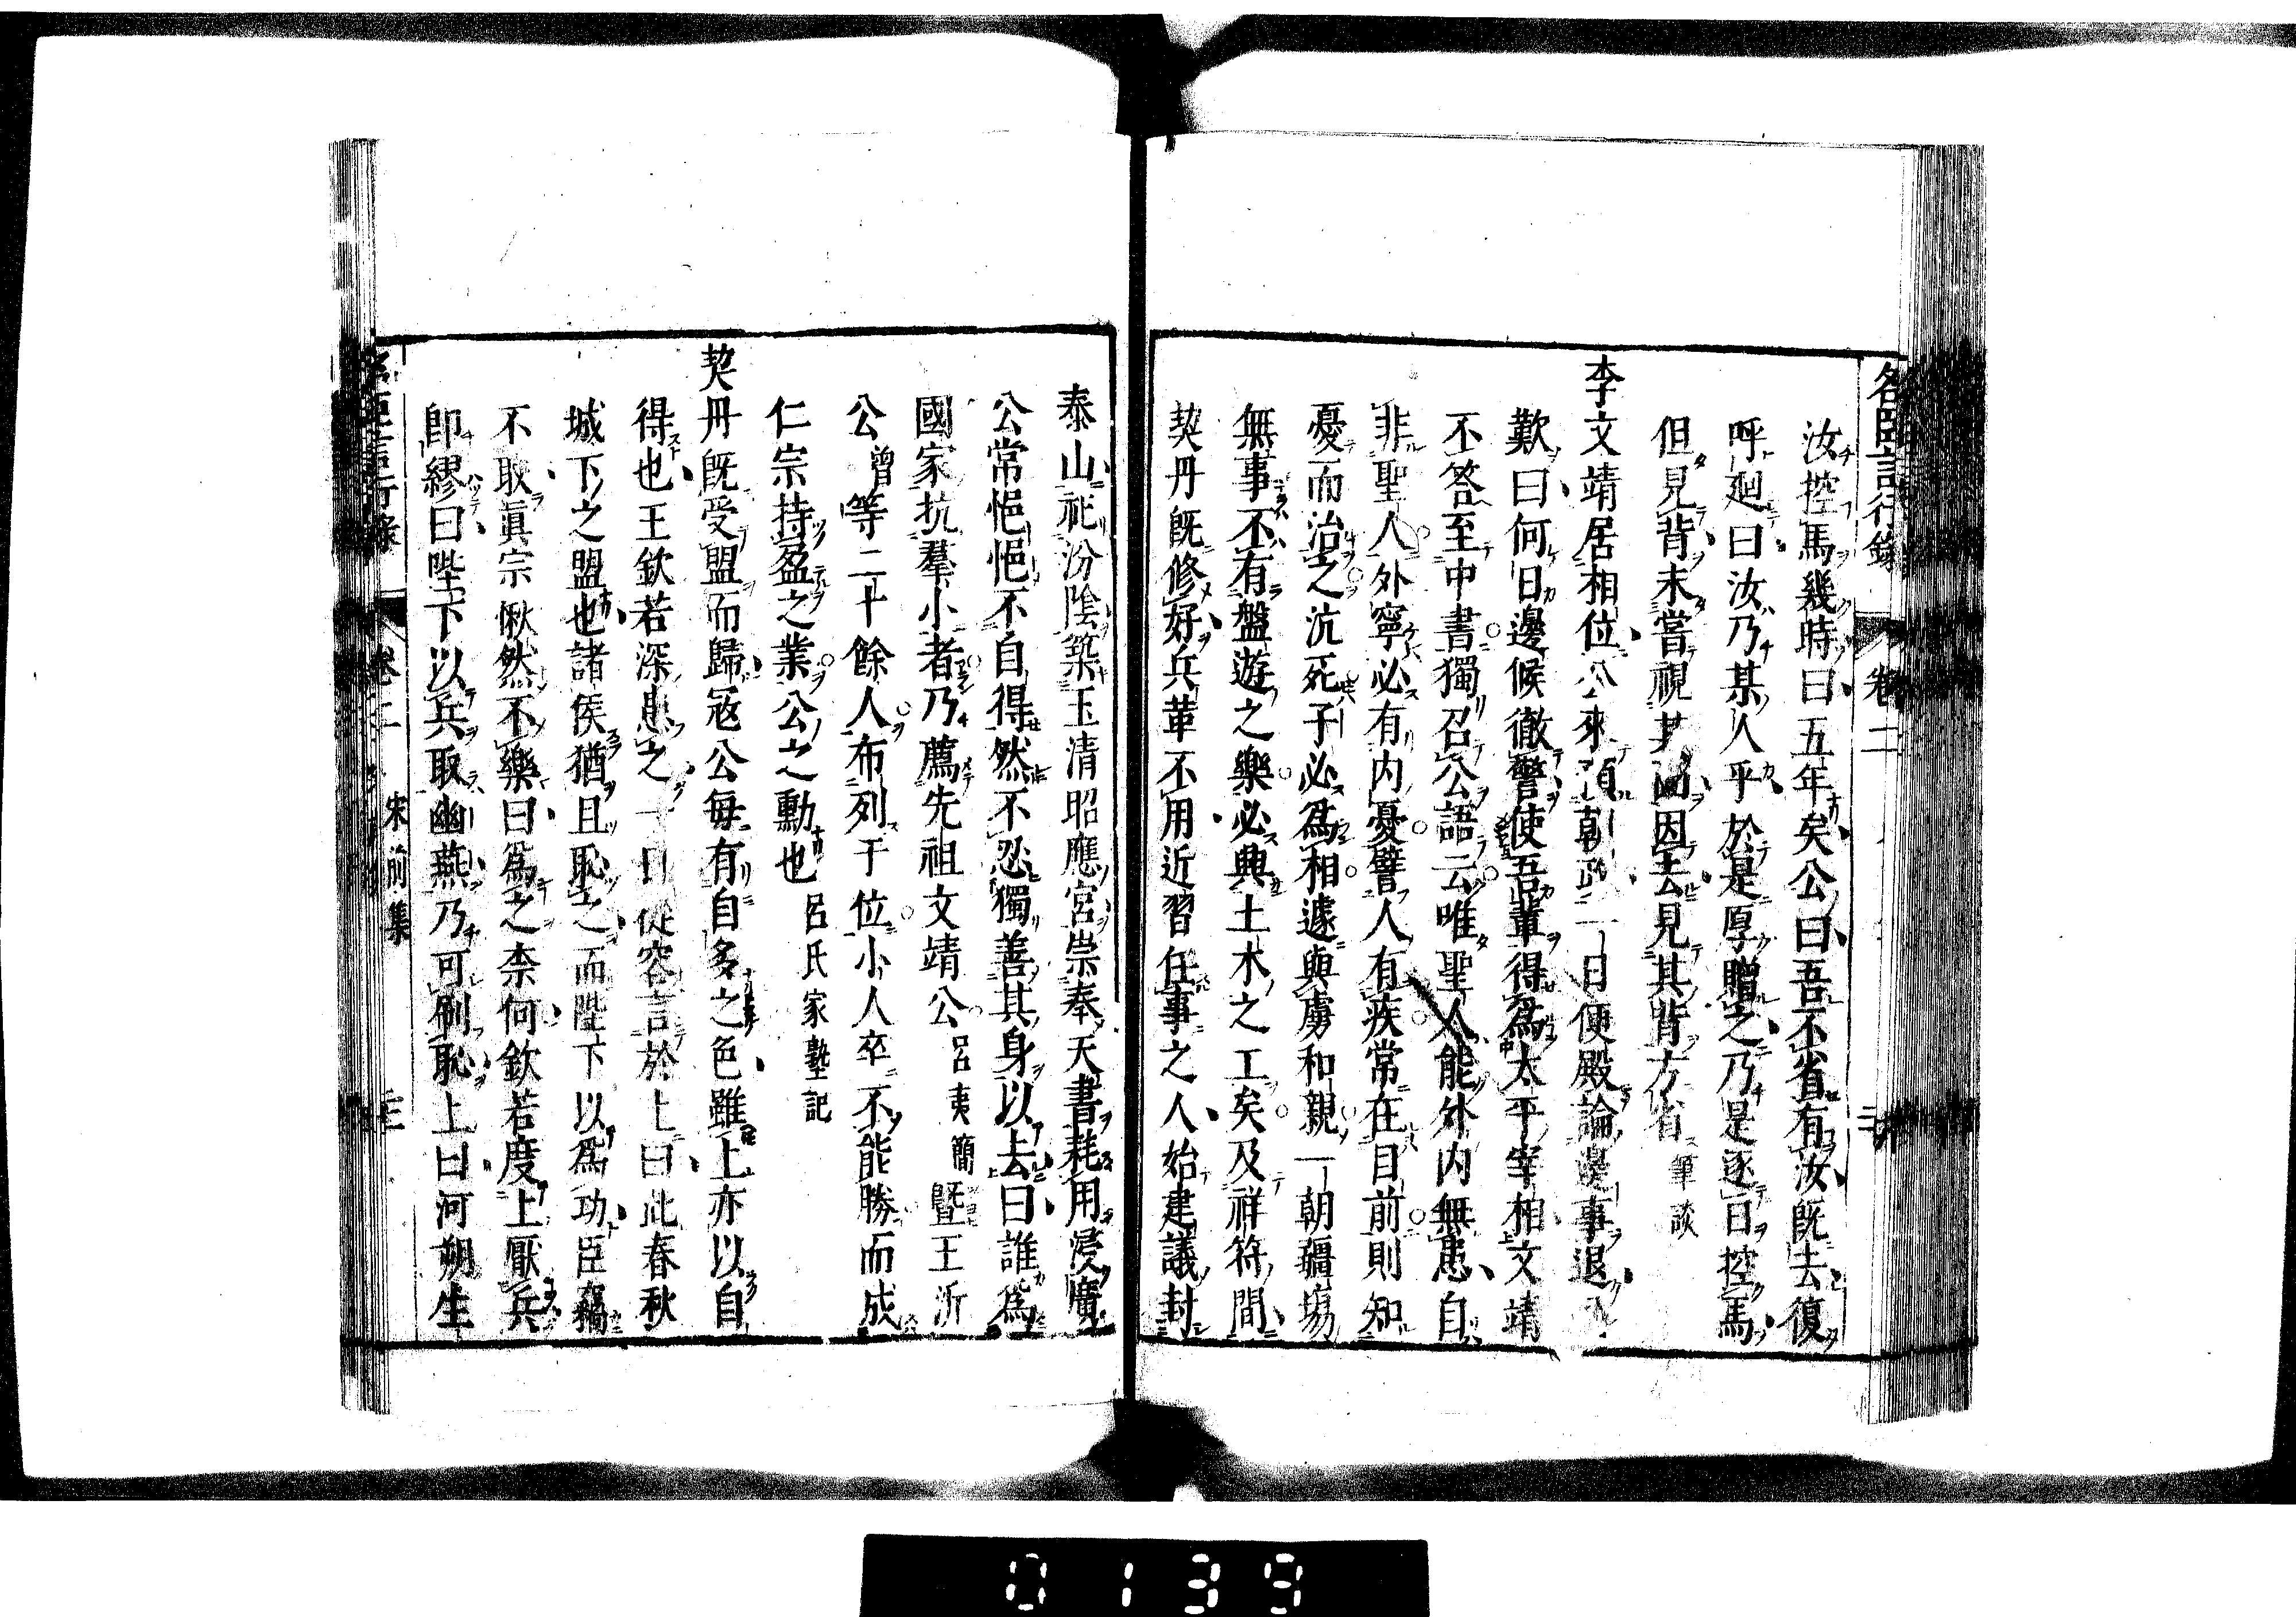 名臣言行錄 卷二
汝控馬幾時曰五年矣公曰吾不省有汝旣去復
呼廻曰汝乃某人乎於是厚贈之乃是逐日控馬
但見背未嘗視其面因去見其背方省 筆談
李文靖居相位公來預朝政一日便殿論邊事退
歎曰何日邊候徹警使吾輩得爲太平宰相文靖
不答至中書獨召公語云唯聖人能外內無患自
非聖人外寧必有內憂譬人有疾常在目前則知
憂而治之沆死子必爲相遽與虜和親一朝疆場
無事不有盤遊之樂必興土木之工矣及祥符間
契丹旣修好兵革不用近習任事之人始建議封
泰山祀汾陰築玉清昭應宮崇奉天書耗用浸廣
公常悒悒不自得然不忍獨善其身以去曰誰爲
國家抗羣小者乃薦先祖文靖公 呂夷簡 曁王沂
公 曾 等二十餘人布列于位小人卒不能勝而成
仁宗持盈之業公之勳也 呂氏家塾記
契丹旣受盟而歸寇公每有自多之色雖上亦以自
得也王欽若深患之一日從容言於上曰此春秋
城下之盟也諸侯猶且恥之而陛下以爲功臣竊
不取眞宗愀然不樂曰爲之柰何欽若度上厭兵
卽繆曰陛下以兵取幽燕乃可刷恥上曰河朔生
名臣言行錄 卷二 宋前集